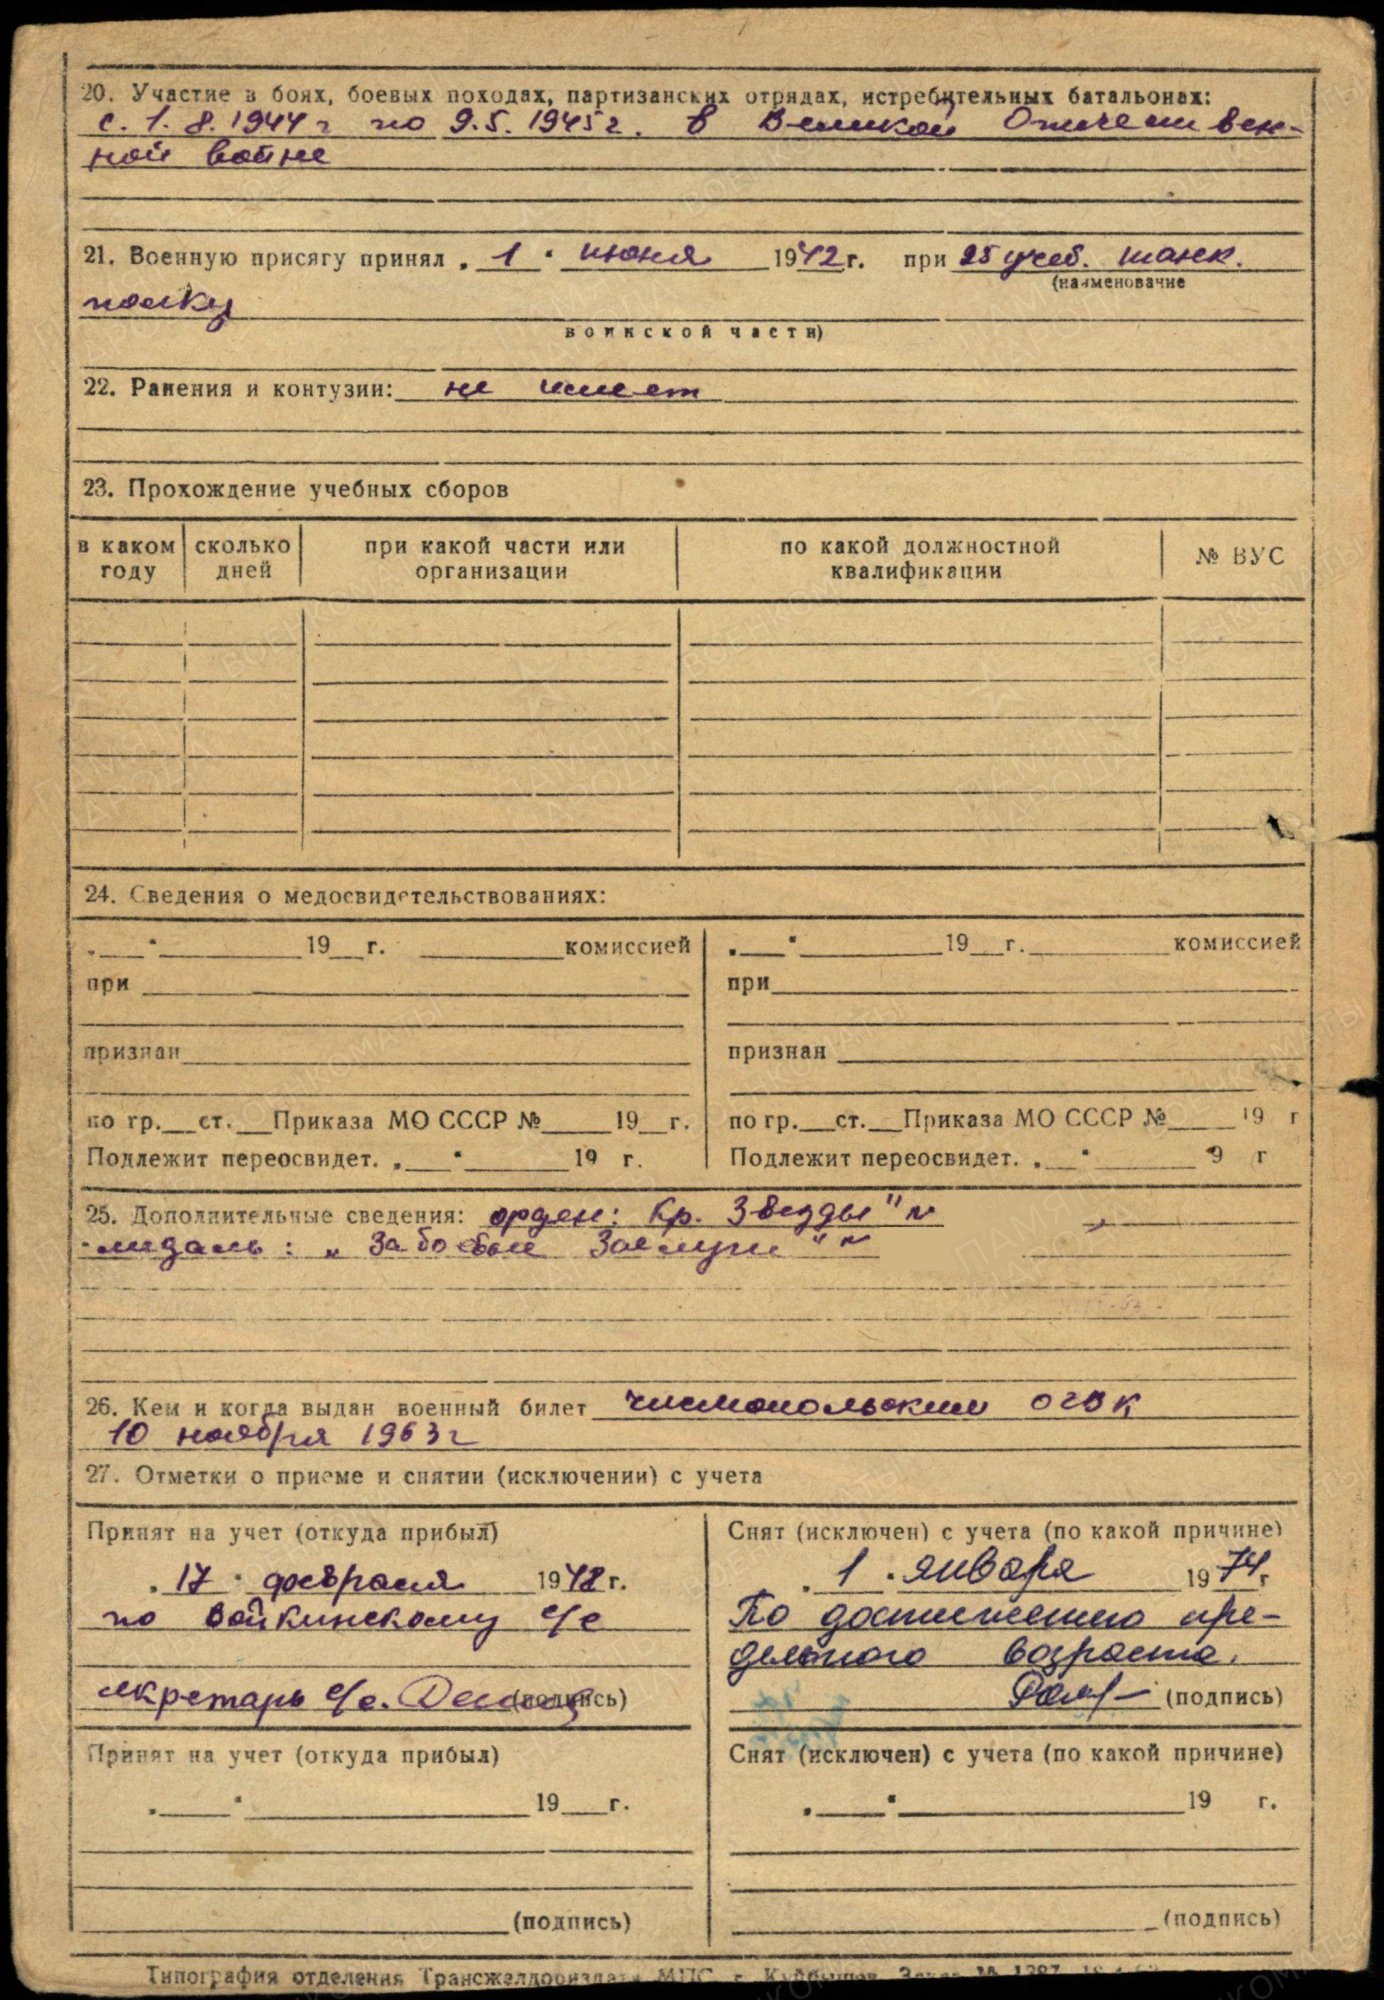 20. Участие в боях, боевых походах, партизанских отрядах, истребительных батальонах:
с. 1. 8. 1944 г по 9. 5. 1945 г. в Великой Отечествен-
ной войне
21. Военную присягу принял „1“ июня 1942 г. при 25 учеб. танк.
(наименование
полку
воинской части)
22. Ранения и контузии: не имеет
23. Прохождение учебных сборов
в каком году сколько дней при какой части или организации по какой должностной квалификации № ВУС
24. Сведения о медосвидетельствованиях:
„ “ 19 г. комиссией „ “ 19 г. комиссией
при при
признан признан
по гр. ст. Приказа МО СССР № 19 г. по гр. ст. Приказа МО СССР № 19 г
Подлежит переосвидет. „ “ 19 г. Подлежит переосвидет. „ “ 9 г
25. Дополнительные сведения: орден: Кр. Звезды" №
медаль: „За боевые Заслуги" №
26. Кем и когда выдан военный билет Чистопольским ОГВК
10 ноября 1963 г
27. Отметки о приеме и снятии (исключении) с учета
Принят на учет (откуда прибыл) Снят (исключен) с учета (по какой причине)
„17“ февраля 1948 г. „1“ января 1974 г
по Войкинскому с/с По достижению пре-
дельного возраста.
секретарь с/с. (подпись) (подпись)
Принят на учет (откуда прибыл) Снят (исключен) с учета (по какой причине)
„ “ 19 г. „ “ 19 г.
(подпись) (подпись)
Типография отделения Трансжелдориздата МПС г. Куйбышев Заказ № 1387